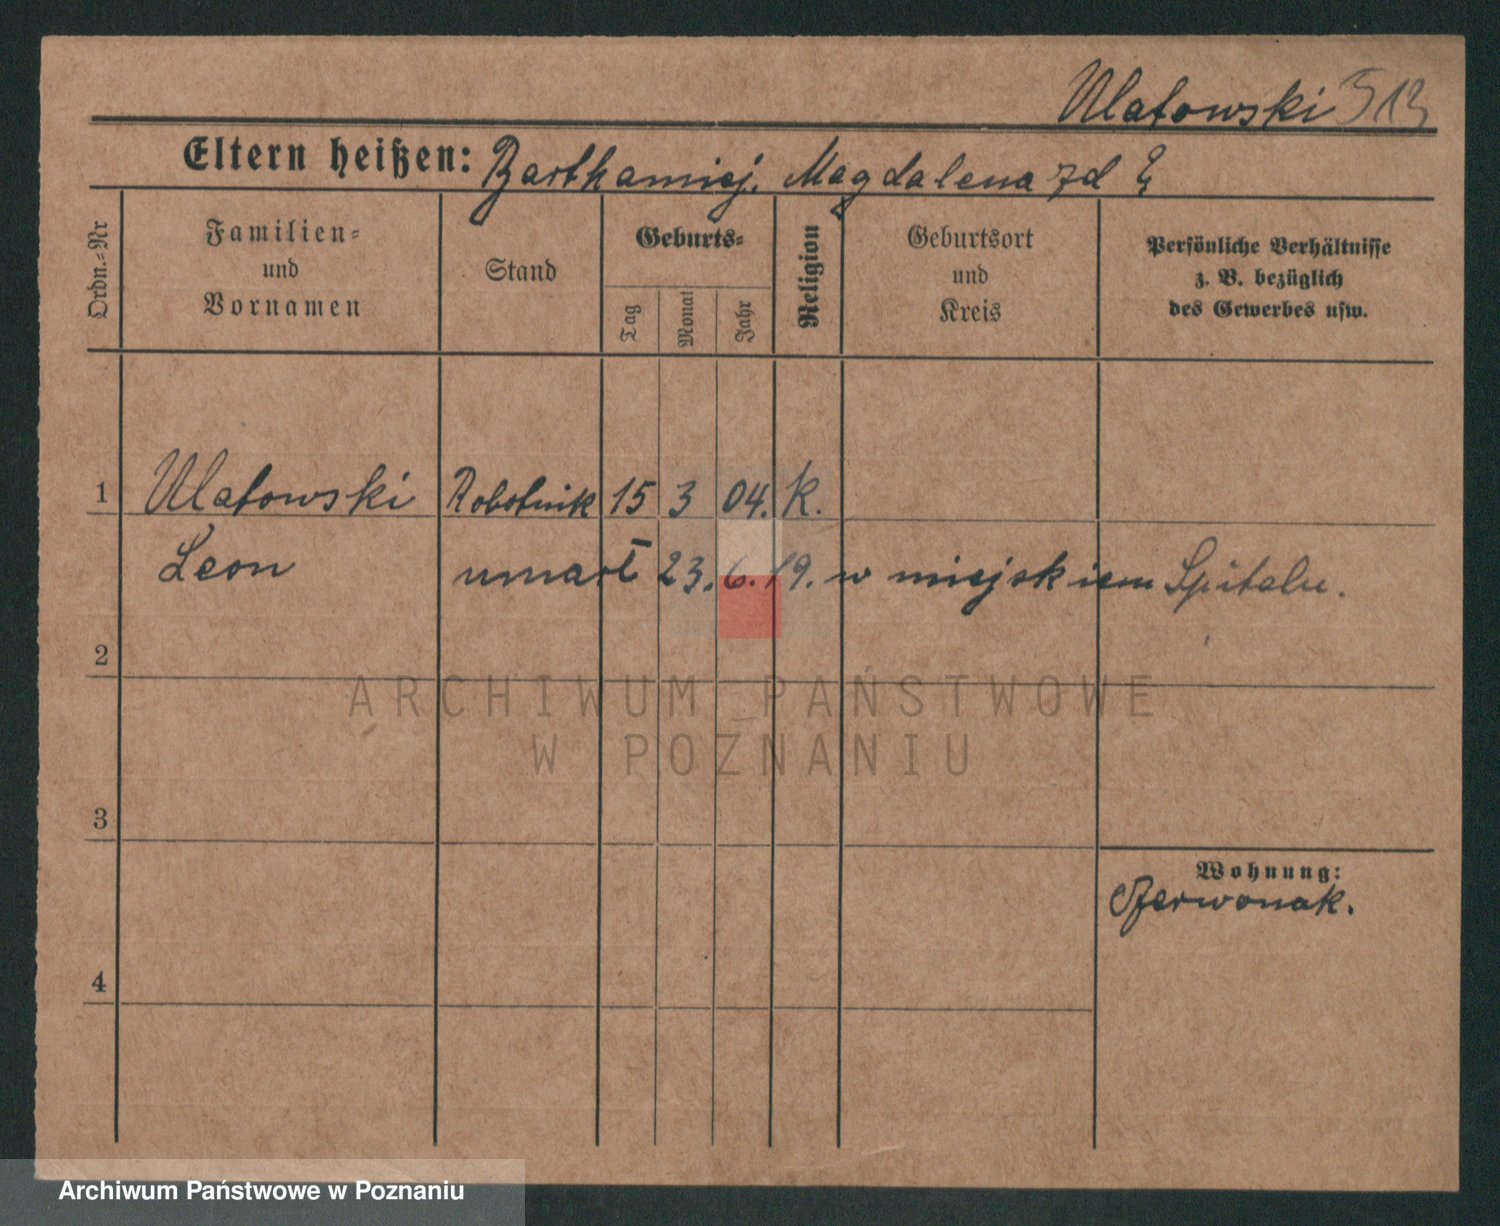 Ulatowski 513
Eltern heißen: Barthamiej. Magdalena zd
Ordn.=Nr
Familien=
und
Vornamen
Stand
Geburts=
Tag
Monat
Jahr
Religion
Geburtsort
und
Kreis
Persönliche Verhältnisse
z. B. bezüglich
des Gewerbes usw.
1 Ulatowski Robotnik 15 3 04. K.
Leon umarł 23. 6. 19. w miejskiem Spitalu.
2
ARCHIWUM PAŃSTWOWE
W POZNANIU
3
Wohnung:
Czerwonak.
4
Archiwum Państwowe w Poznaniu